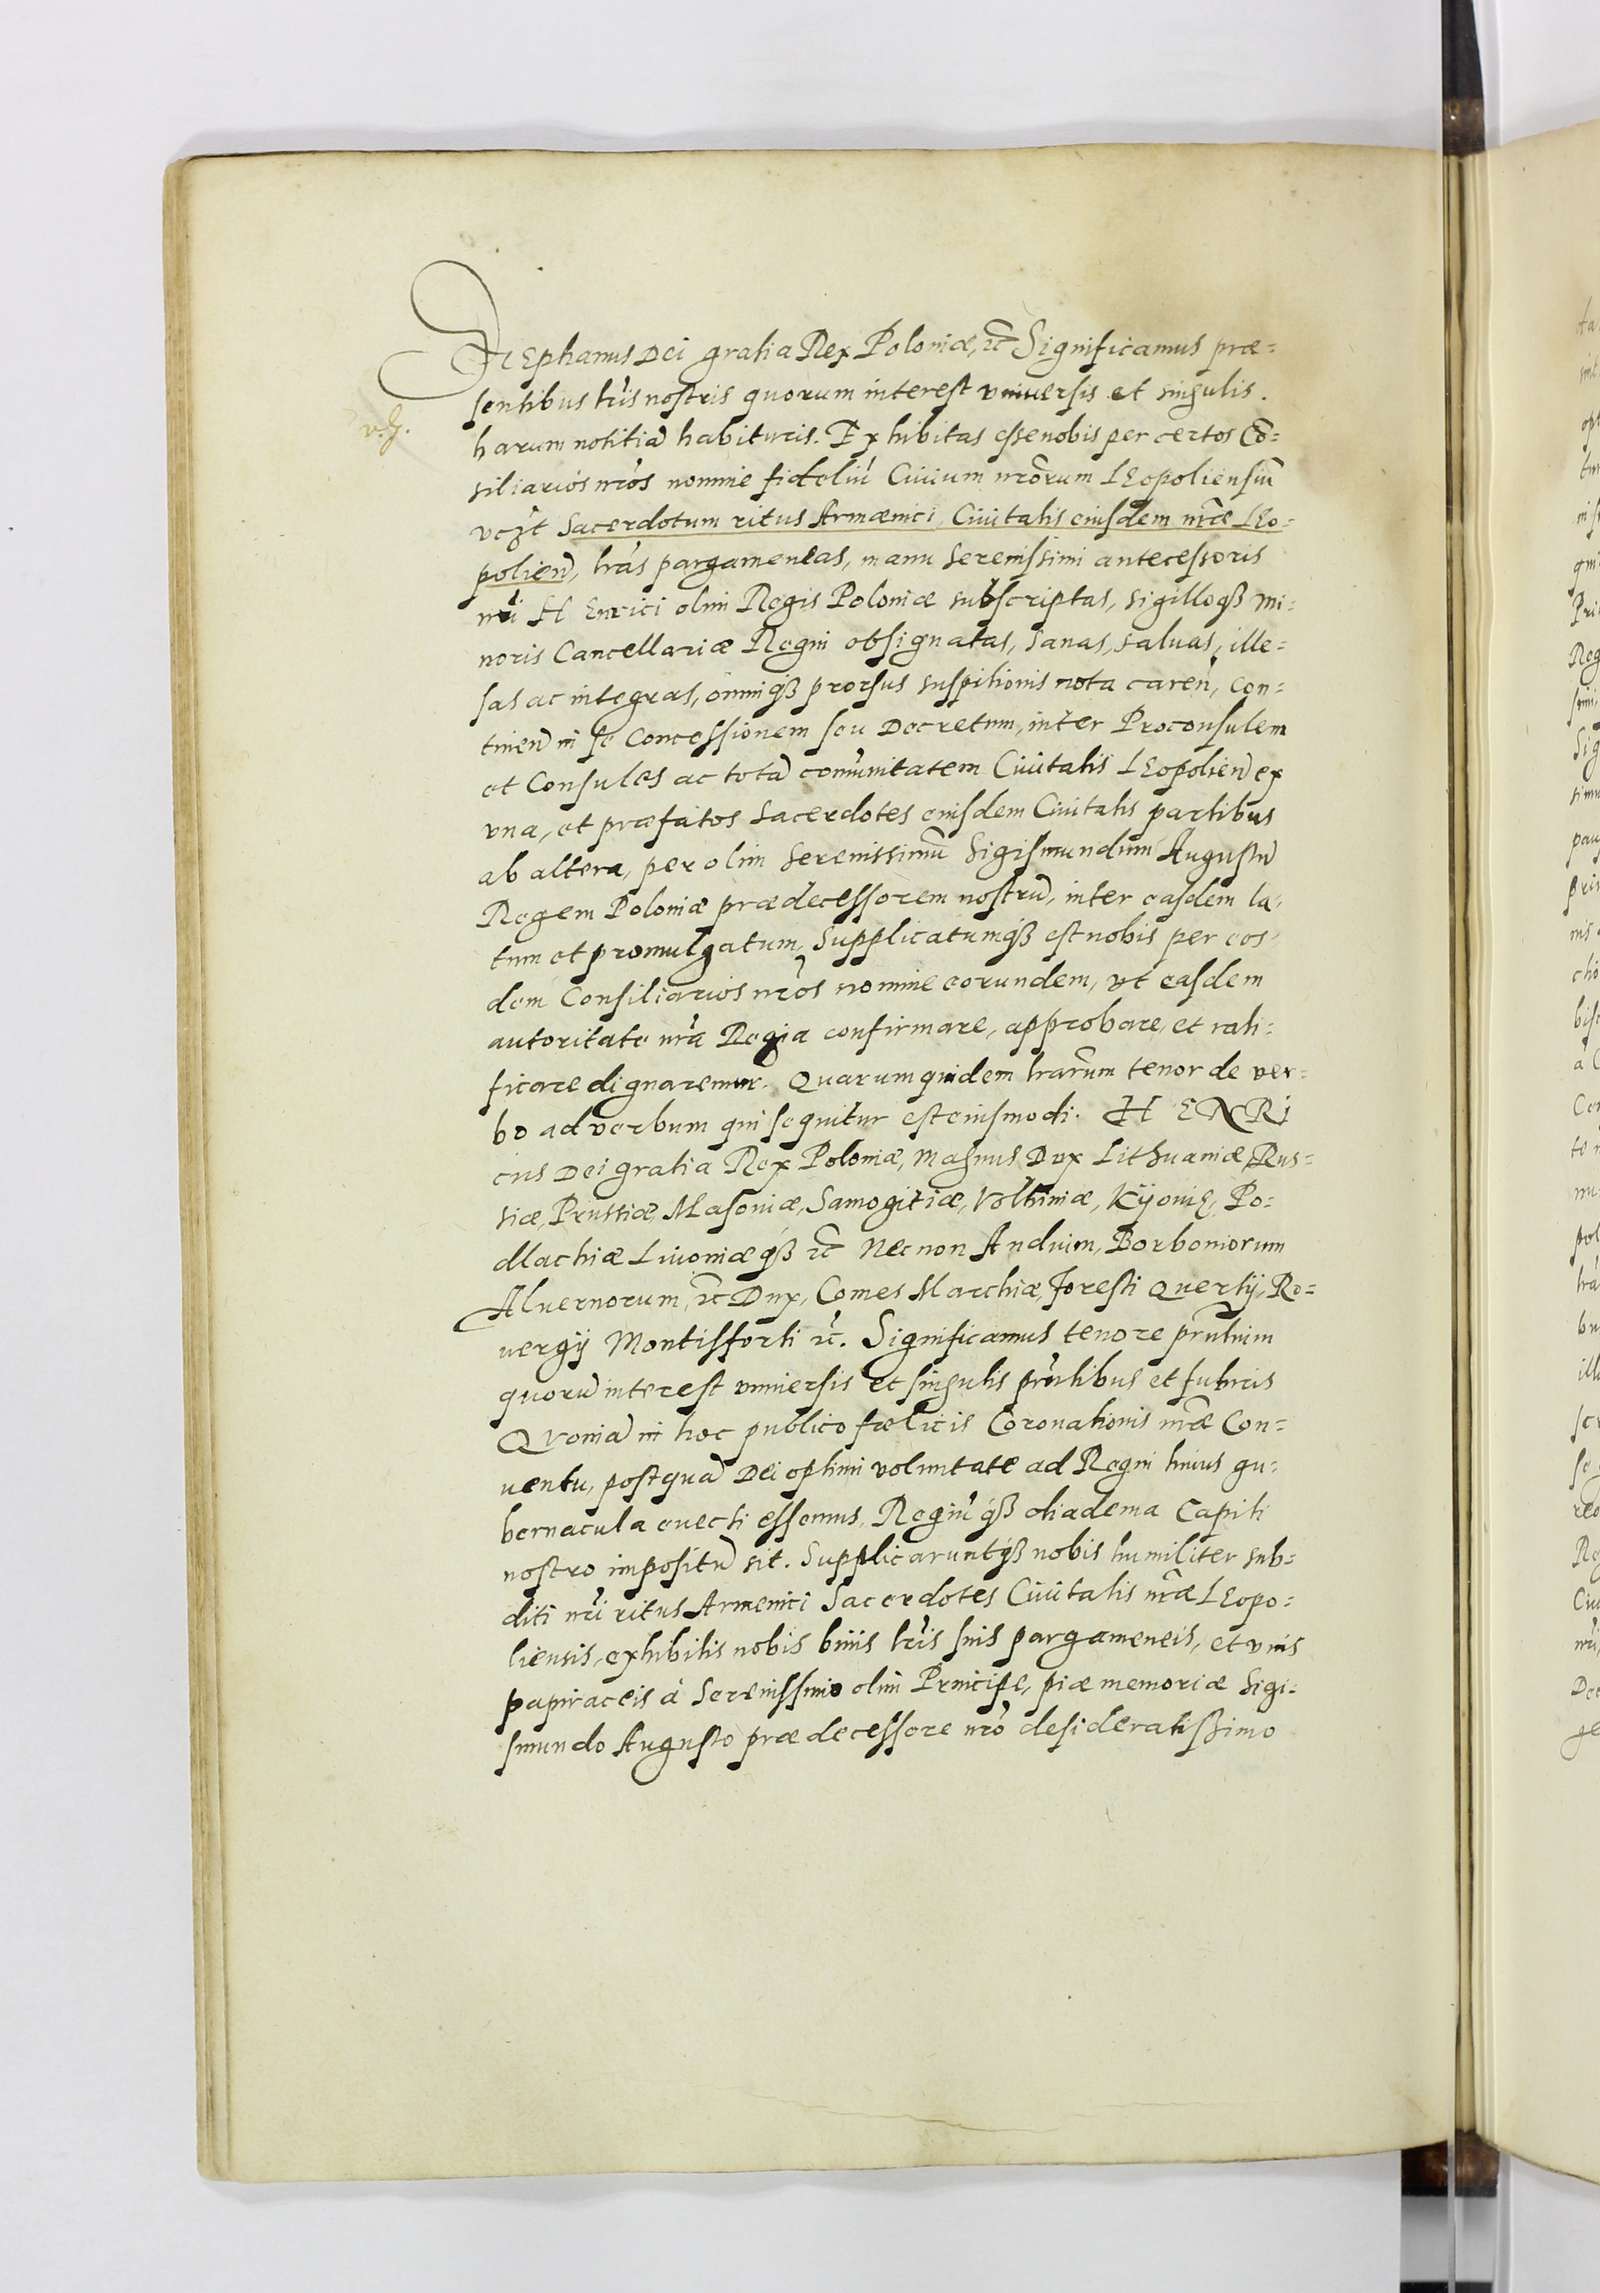 Stephanus Dei gratia Rex Poloniæ, rc̃ Significamus præ=
sentibus lr̃is nostris quorum interest vniuersis et singulis.
harum notitiã habituris. Exhibitas esse nobis per certos Cõ=
siliarios nr̃os nomine fideliũ Ciuium nr̃orum LEopoliensiũ
vczt Sacerdotum ritus Armænici, Ciuitatis eiusdem nr̃æ LEo=
polieñ, lr̃as pargameneas, manu Serenissimi antecessoris
nr̃i HEnrici olim Regis Poloniæ subscriptas, sigilloqß mi=
noris Cancellariæ Regni obsignatas, sanas, saluas, ille=
sas ac integras, omniqß prorsus suspitionis nota careñ, con=
tineñ in se Concessionem seu Decretum, inter Proconsulem
et Consules ac totã com̃unitatem Ciuitatis LEopolieñ ex
vna, et præfatos Sacerdotes eiusdem Ciuitatis partibus
ab altera, per olim Serenissimũ Sigismundum Augustũ
Regem Poloniæ prædecessorem nostrũ, inter easdem la=
tum et promulgatum, Supplicatumqß est nobis per eos=
dem Consiliarios nr̃os nomine eorundem, vt easdem
autoritate nr̃a Regia confirmare, approbare, et rati=
ficare dignaremur. Quarum quidem lr̃arum tenor de ver=
bo ad verbum qui sequitur est eiusmodi. HENRI
cus Dei gratia Rex Poloniæ, Magnus Dux Lithuaniæ, Rus=
siæ, Prussiæ, Masoniæ, Samogitiæ, Volhiniæ, Kijouię, Po=
dlachiæ Liuoniæqß rc̃ Necnon Anduim, Borboniorum
Aluernorum, rc̃ Dux, Comes Marchiæ, Foresti Quertij, Ro=
uergij Montisforti rc̃. Significamus tenore pr̃ntium
quorũ interest vniuersis et singulis pr̃ntibus et futuris
Quoniã in hoc publico fœlicis Coronationis nr̃æ Con=
uentu, postquã Dei optimi voluntate ad Regni huius gu=
bernacula euecti essemus, Regiũqß diadema Capiti
nostro impositũ sit. Supplicaruntqß nobis humiliter sub=
diti nr̃i ritus Armenici Sacerdotes Ciuitatis nr̃æ LEopo=
liensis, exhibitis nobis binis lr̃is suis pargameneis, et vnis
papiraceis à Serenissimo olim Principe, piæ memoriæ Sigi=
smundo Augusto prædecessore nr̃o desideratißimo